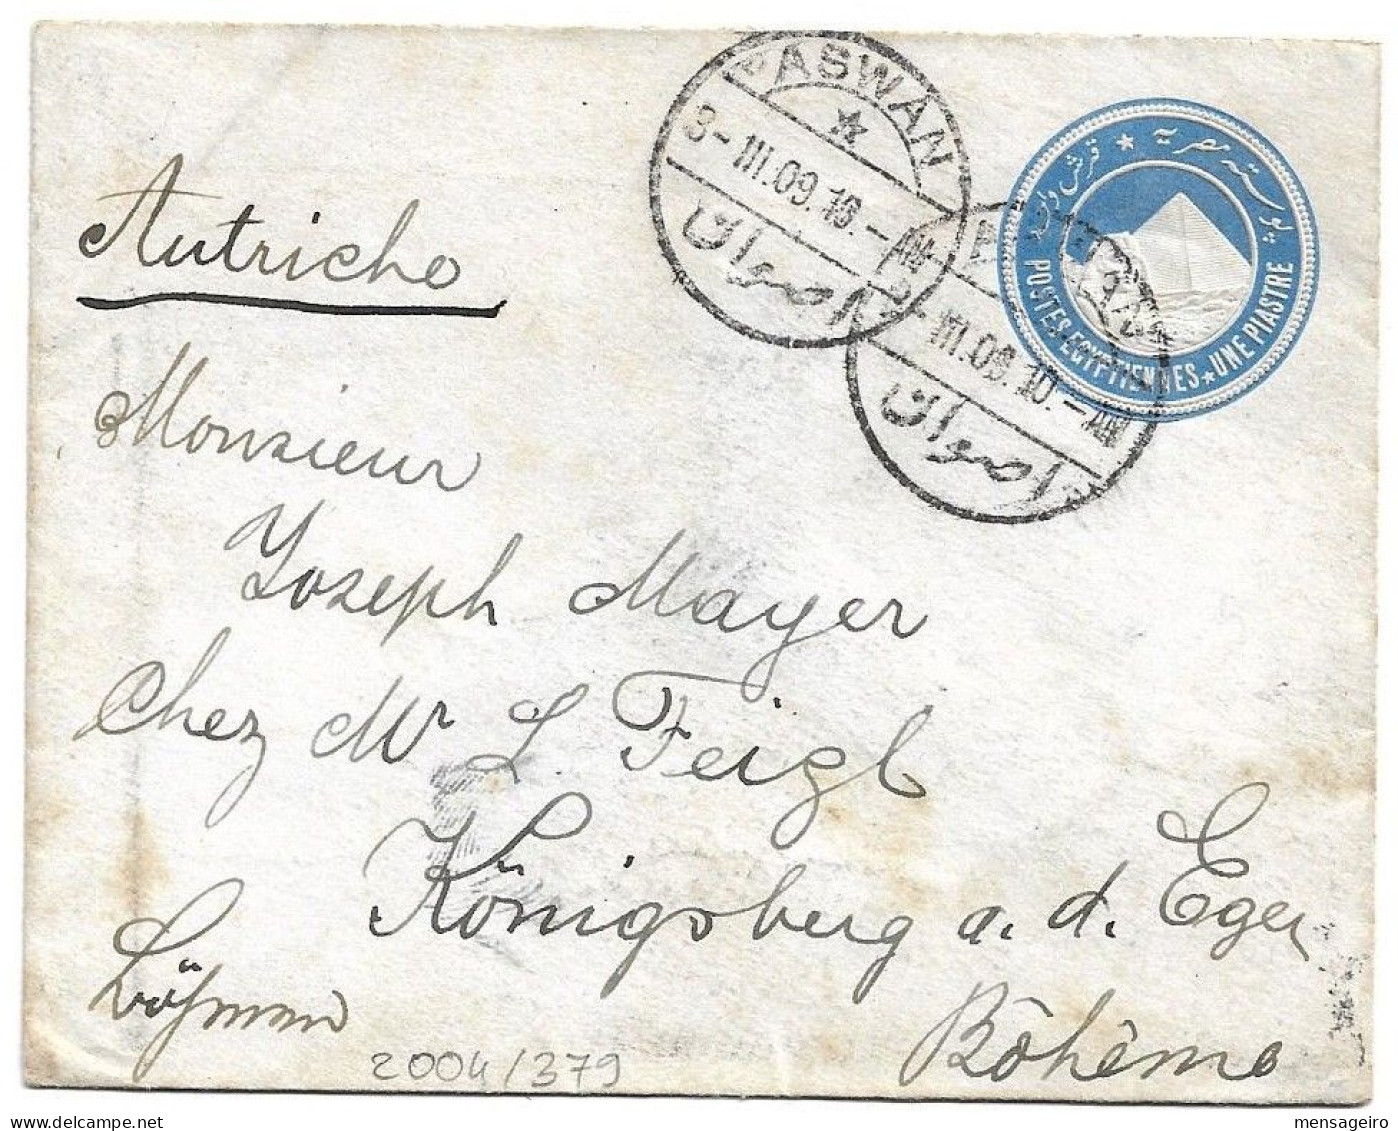 ASWAN
3-III.09.10.-AM
اصوان
-III.09.10.-AM
اصوان
بوسته مصرية ★ قرش واحد
POSTES EGYPTIENNES ★ UNE PIASTRE
Autriche
Monsieur
Joseph Mayer
Chez Mr L. Feigl
Königsberg a. d. Eger
Böhmen
Bôhême
2004/379
mensageiro